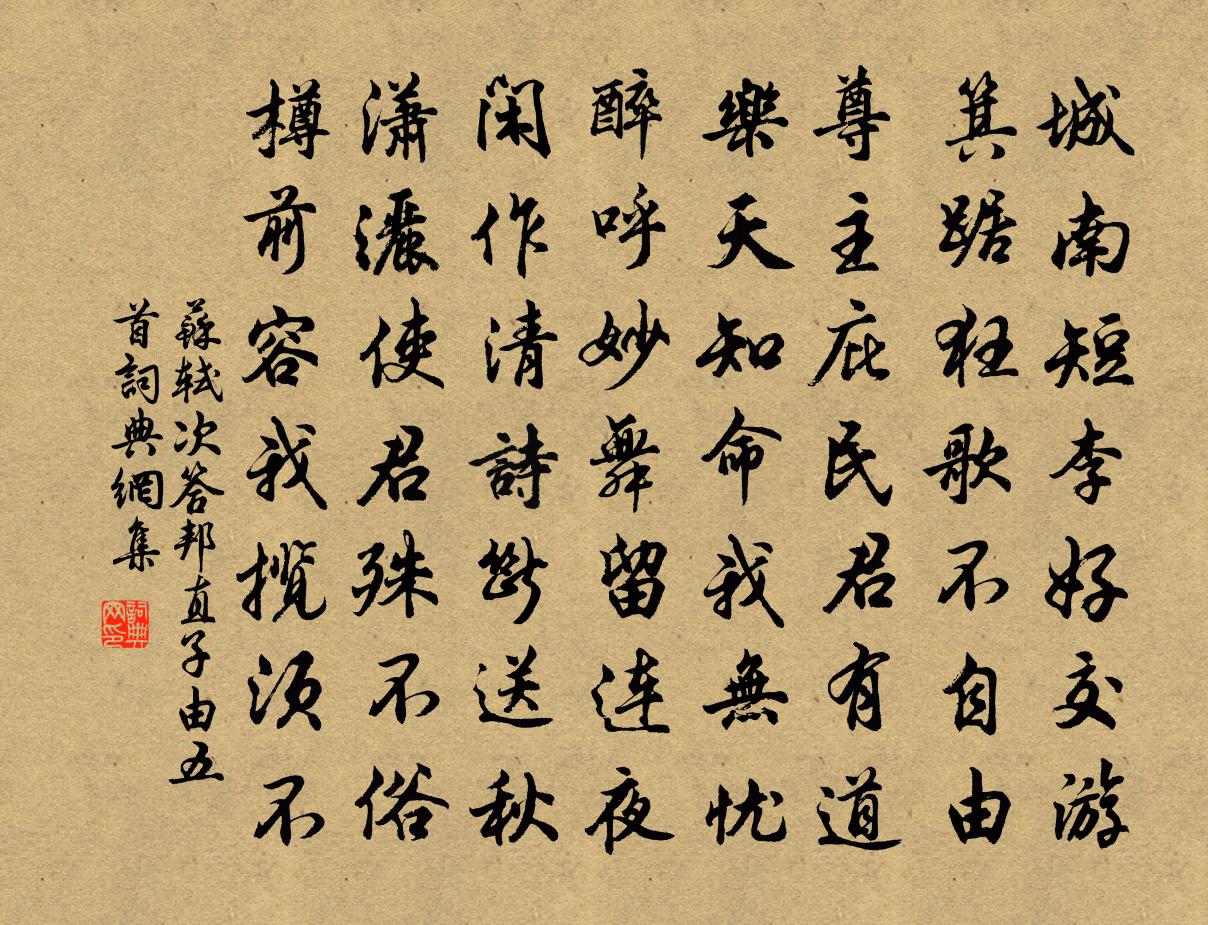 城南短李好交游
箕踞狂歌不自由
尊主庇民君有道
樂天知命我無忧
醉呼妙舞留連夜
闲作清詩斷送秋
瀟灑使君殊不俗
樽前容我攬須不
蘇軾次答邦直子由五
首詞典網集
詞典网印